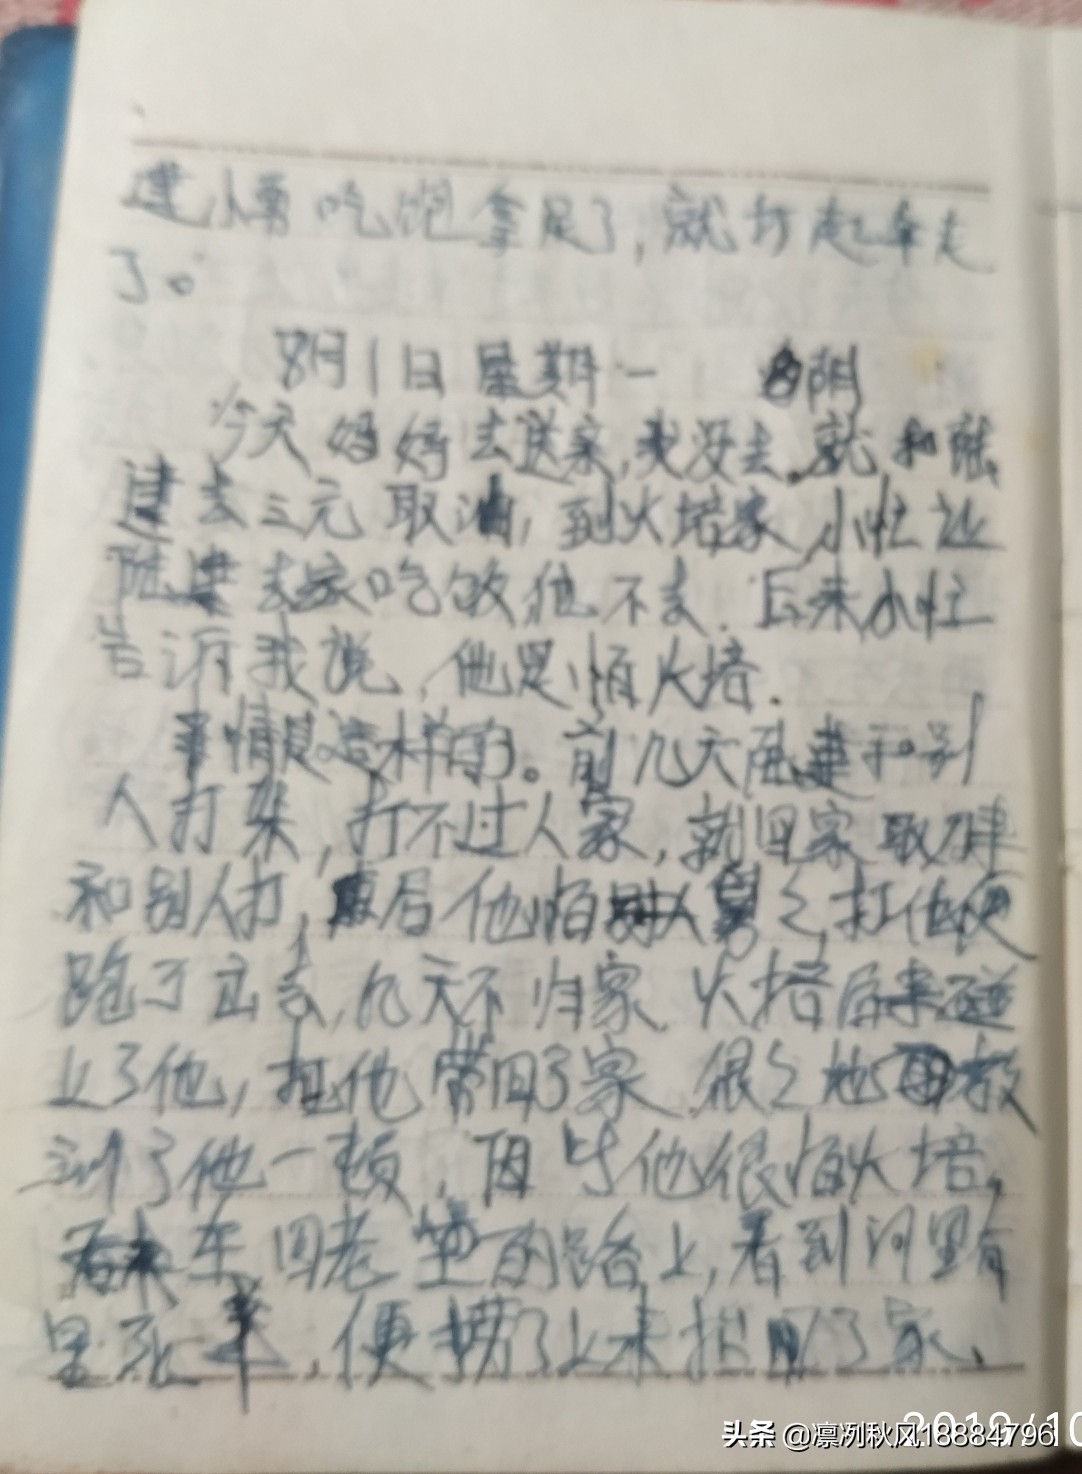 建小勇吃饱拿足了，就打起伞走
了。
8月1日 星期一 阴
今天妈妈去送家，我没去，就和陆
建去三元取油，到火培家，小忙让
陆建去家吃饭他不去．后来小忙
告诉我说，他是怕火培．
事情是这样的。前几天陆建和别
人打架，打不过人家，就回家取肆
和别人打，后他怕舅く打他便
跑了出去，几天不归家．火培后来碰
上了他，把他带回了家．很く地教
训了他一顿，因此他很怕火培，
在回老的路上，看到河里有
死羊，便捞了上来扒了家．
2019/10
头条 @凛冽秋风18884796